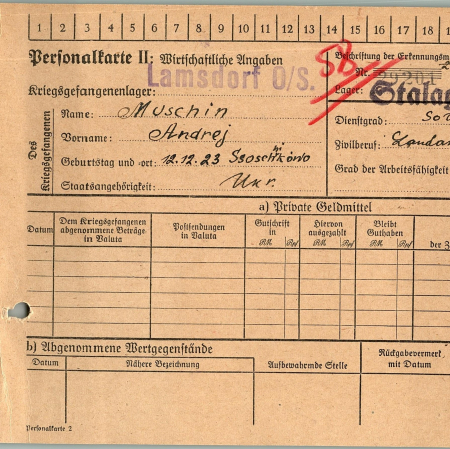 1 2 3 4 5 6 7 8 9 10 11 12 13 14 15 16 17 18
Personalkarte II: Wirtschaftliche Angaben
Beschriftung der Erkennungsm
Lamsdorf O/S.
Nr.
Kriegsgefangenenlager:
Lager: Stalag
Des Kriegsgefangenen
Name: Muschin
Dienstgrad: Sol
Vorname: Andrej
Zivilberuf:
Geburtstag und -ort: 12.12.23
Grad der Arbeitsfähigkeit
Staatsangehörigkeit: Ukr.
a) Private Geldmittel
Datum
Dem Kriegsgefangenen abgenommene Beträge in Valuta
Postsendungen in Valuta
Gutschrift in
RM. Rpf
Hiervon ausgezahlt
RM. Rpf
Bleibt Guthaben
RM. Rpf
der Z
b) Abgenommene Wertgegenstände
Datum
Nähere Bezeichnung
Aufbewahrende Stelle
Rückgabevermerk mit Datum
Personalkarte 2